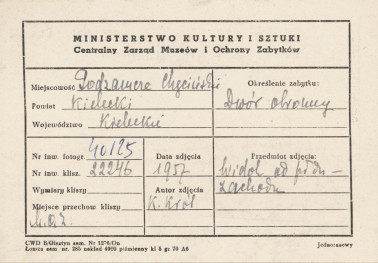 MINISTERSTWO KULTURY I SZTUKI
Centralny Zarząd Muzeów i Ochrony Zabytków
Miejscowość Podzamcze Chęcińskie
Powiat Kielecki
Województwo Kieleckie
Określenie zabytku:
Dwór obronny
Nr inw. fotogr. 40125
Nr inw. klisz. 22246
Wymiary kliszy
Miejsce przechow kliszy
Data zdjęcia
1957
Autor zdjęcia
K. Król
Przedmiot zdjęcia:
Widok od płdn-
zachodu
CWD R/Olsztyn zam. Nr 1276/On
Łomża zam nr. 285 nakład 4000 piśmienny kl 5 gr 70 A6
jednorazowy